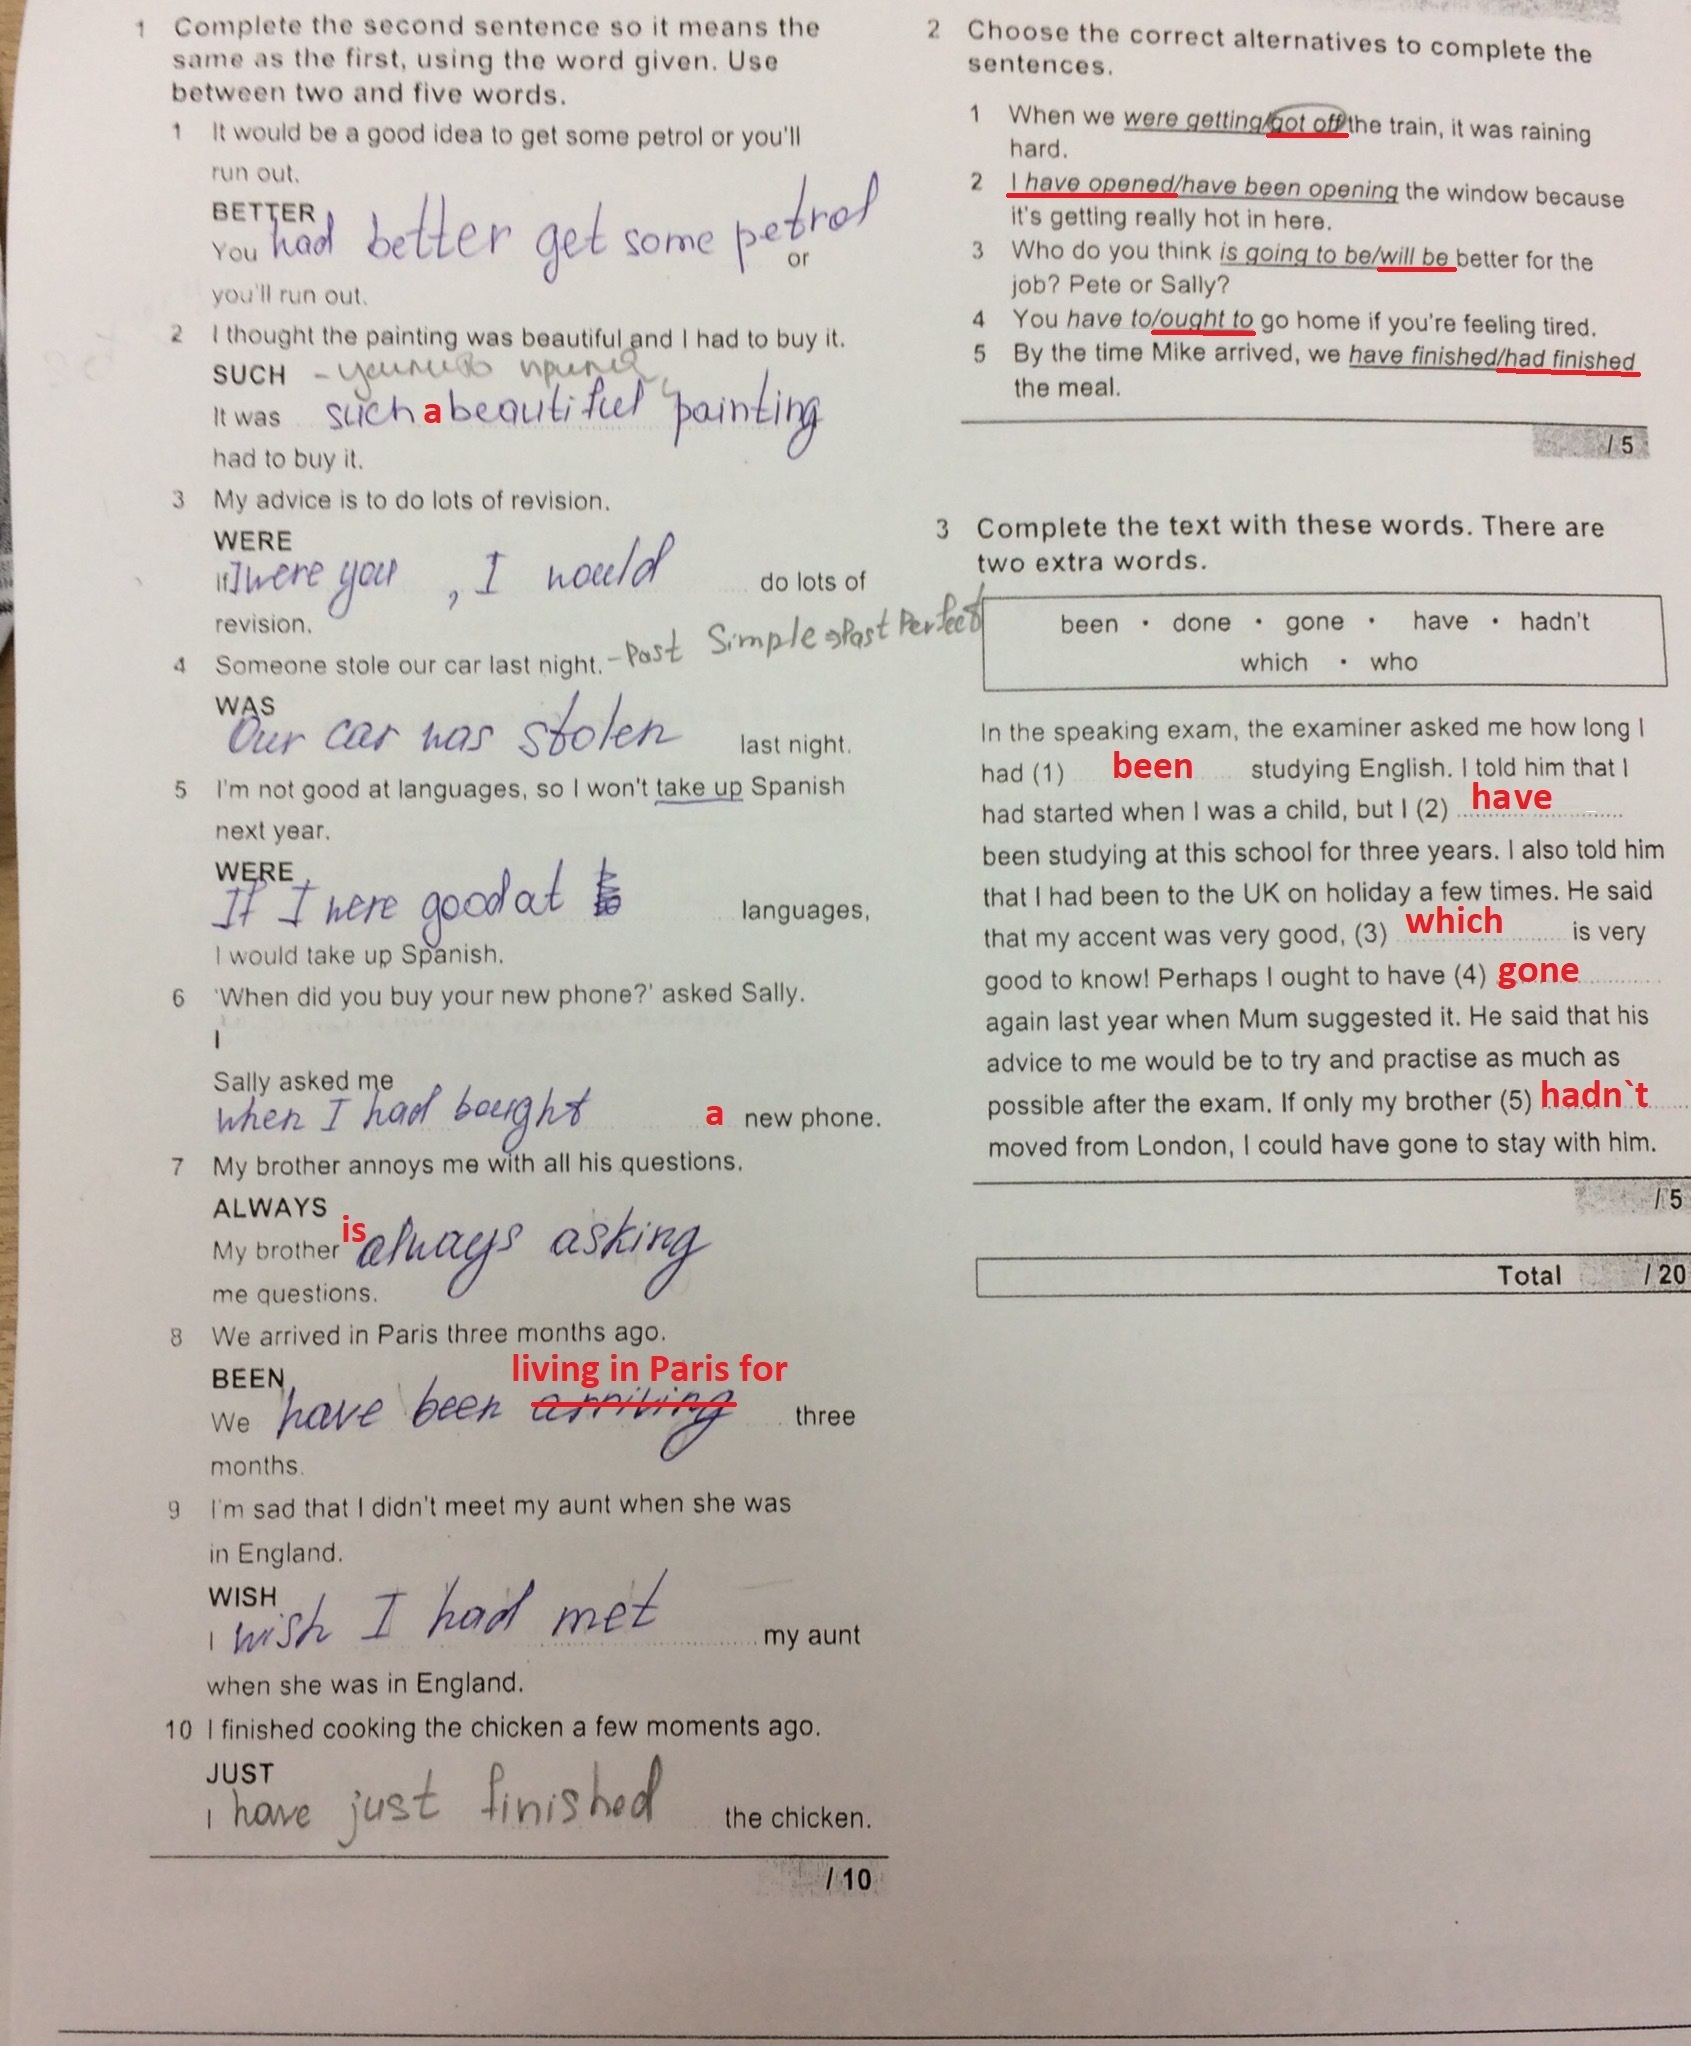 1 Complete the second sentence so it means the
same as the first, using the word given. Use
between two and five words.
1 It would be a good idea to get some petrol or you'll
run out.
BETTER
You had better get some petrol or
you'll run out.
2 I thought the painting was beautiful and I had to buy it.
SUCH -
It was such a beautiful painting
had to buy it.
3 My advice is to do lots of revision.
WERE
If I were you , I would do lots of
revision.
4 Someone stole our car last night. - Past Simple → Past Perfect
WAS
Our car was stolen last night.
5 I'm not good at languages, so I won't take up Spanish
next year.
WERE
If I were good at languages,
I would take up Spanish.
6 'When did you buy your new phone?' asked Sally.
I
Sally asked me
when I had bought a new phone.
7 My brother annoys me with all his questions.
ALWAYS
My brother is always asking
me questions.
8 We arrived in Paris three months ago.
living in Paris for
BEEN
We have been arriving three
months.
9 I'm sad that I didn't meet my aunt when she was
in England.
WISH
I wish I had met my aunt
when she was in England.
10 I finished cooking the chicken a few moments ago.
JUST
I have just finished the chicken.
/ 10
2 Choose the correct alternatives to complete the
sentences.
1 When we were getting/got off the train, it was raining
hard.
2 I have opened/have been opening the window because
it's getting really hot in here.
3 Who do you think is going to be/will be better for the
job? Pete or Sally?
4 You have to/ought to go home if you're feeling tired.
5 By the time Mike arrived, we have finished/had finished
the meal.
/ 5
3 Complete the text with these words. There are
two extra words.
been • done • gone • have • hadn't
which • who
In the speaking exam, the examiner asked me how long I
had (1) been studying English. I told him that I
had started when I was a child, but I (2) have
been studying at this school for three years. I also told him
that I had been to the UK on holiday a few times. He said
that my accent was very good, (3) which is very
good to know! Perhaps I ought to have (4) gone
again last year when Mum suggested it. He said that his
advice to me would be to try and practise as much as
possible after the exam. If only my brother (5) hadn`t
moved from London, I could have gone to stay with him.
/ 5
Total / 20